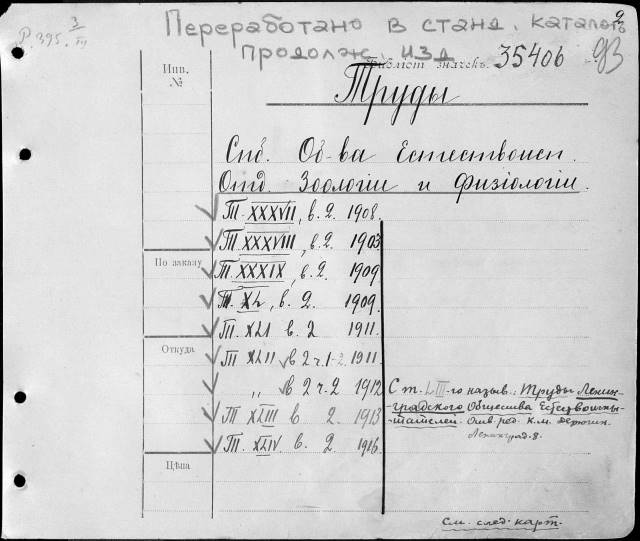 Переработано в станд. каталог
продолж. изд
Р. 395. 3/III
Инв.
№
Библиот значекъ. 35406
93
Труды
Спб. Об-ва Естествоисп.
Отд. Зоологіи и Физіологіи.
Т. XXXVII, в. 2. 1908.
Т. XXXVIII, в. 2. 1903
По заказу
Т. XXXIX, в. 2. 1909
Т. XL, в. 2. 1909.
Т. XLI в. 2 1911.
Откуда
Т XLII в 2 ч. 1-2. 1911.
„ в 2 ч. 2 1912
С т. LIII-го назыв.: Труды Ленин-
градского Общества Естествоиспы-
тателей. Отв. ред. К. М. Дерюгин.
Ленинград. 8.
Т XLIII в 2. 1913
Т. XLIV. в. 2. 1916.
Цѣна
См. след. карт.